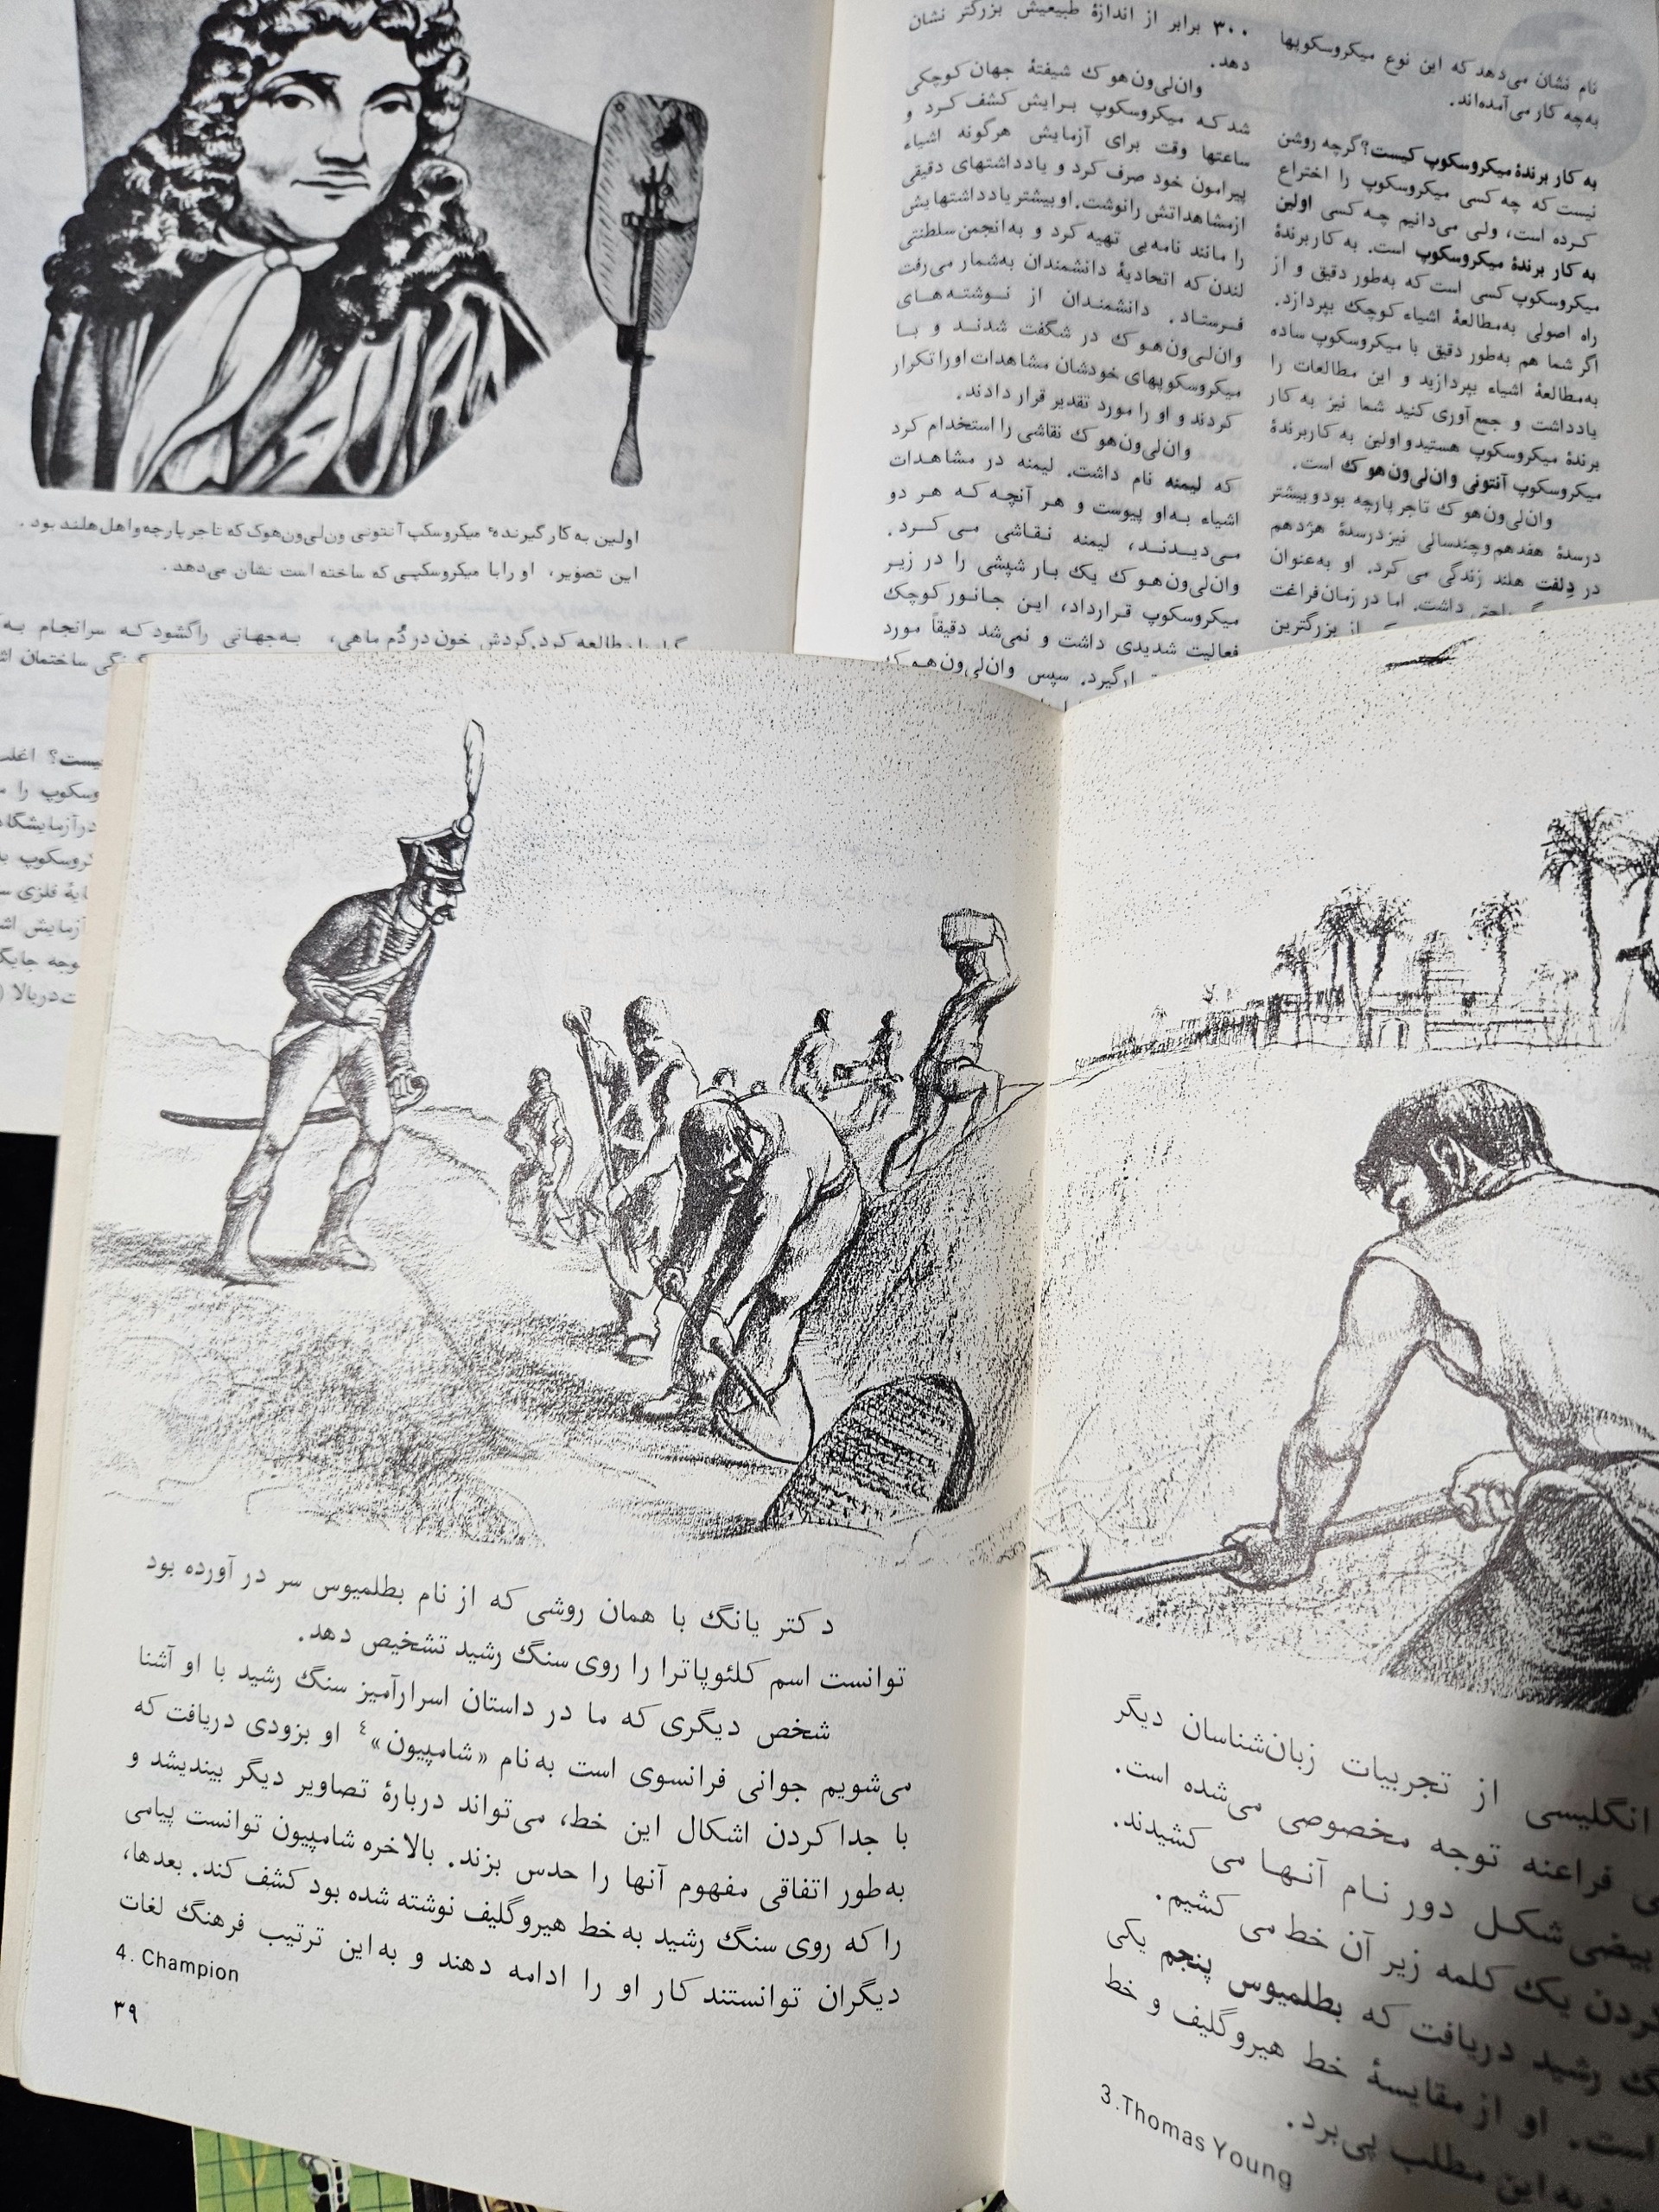 نام نشان می‌دهد که این نوع میکروسکوپها
به‌چه کار می‌آمده‌اند.
به کار برندهٔ میکروسکوپ کیست؟ گرچه روشن
نیست که چه کسی میکروسکوپ را اختراع
کرده است، ولی می‌دانیم چه کسی اولین
به کار برندهٔ میکروسکوپ است. به کار برندهٔ
میکروسکوپ کسی است که به‌طور دقیق و از
راه اصولی به‌مطالعهٔ اشیاء کوچک بپردازد.
اگر شما هم به‌طور دقیق با میکروسکوپ ساده
به‌مطالعهٔ اشیاء بپردازید و این مطالعات را
یادداشت و جمع آوری کنید شما نیز به کار
برندهٔ میکروسکوپ هستید و اولین به کار برندهٔ
میکروسکوپ آنتونی وان‌لی‌ون‌هوک است.
وان‌لی‌ون‌هوک تاجر پارچه بود و بیشتر
درسدهٔ هفدهم و چندسالی نیز درسدهٔ هژدهم
در دِلفت هلند زندگی می کرد. او به‌عنوان
داشت. اما در زمان فراغت
از بزرگترین
۳۰۰ برابر از اندازهٔ طبیعیش بزرگتر نشان
دهد.
وان‌لی‌ون‌هوک شیفتهٔ جهان کوچکی
شد که میکروسکوپ برایش کشف کرد و
ساعتها وقت برای آزمایش هرگونه اشیاء
پیرامون خود صرف کرد و یادداشتهای دقیقی
ازمشاهداتش رانوشت. او بیشتر یادداشتهایش
را مانند نامه‌یی تهیه کرد و به‌انجمن سلطنتی
لندن که اتحادیهٔ دانشمندان به‌شمار می‌رفت
فرستاد. دانشمندان از نوشته‌های
وان‌لی‌ون‌هوک در شگفت شدند و با
میکروسکوپهای خودشان مشاهدات او را تکرار
کردند و او را مورد تقدیر قرار دادند.
وان‌لی‌ون‌هوک نقاشی را استخدام کرد
که لیمنه نام داشت. لیمنه در مشاهدات
اشیاء به‌او پیوست و هر آنچه که هر دو
می‌دیدند، لیمنه نقاشی می‌کرد.
وان‌لی‌ون‌هوک یک بار شپشی را در زیر
میکروسکوپ قرارداد، این جانور کوچک
فعالیت شدیدی داشت و نمی‌شد دقیقاً مورد
سپس وان‌لی‌ون‌هوک
اولین به کار گیرندهٔ میکروسکپ آنتونی ون‌لی‌ون‌هوک که تاجر پارچه و اهل هلند بود.
این تصویر، او را با میکروسکپی که ساخته است نشان می‌دهد.
مطالعه کرد. گردش خون در دُم ماهی،
به‌جهانی راگشود که سرانجام
ساختمان
اغلب
را
بالا
انگلیسی از تجربیات زبان‌شناسان دیگر
فراعنه توجه مخصوصی می‌شده است.
بیضی شکل دور نام آنها می کشیدند.
یک کلمه زیر آن خط می کشیم.
رشید دریافت که بطلمیوس پنجم یکی
است. او از مقایسهٔ خط هیروگلیف و خط
به این مطلب پی‌برد.
3. Thomas Young
دکتر یانگ با همان روشی که از نام بطلمیوس سر در آورده بود
توانست اسم کلئوپاترا را روی سنگ رشید تشخیص دهد.
شخص دیگری که ما در داستان اسرارآمیز سنگ رشید با او آشنا
می‌شویم جوانی فرانسوی است به‌نام «شامپیون»⁴ او بزودی دریافت که
با جدا کردن اشکال این خط، می‌تواند دربارهٔ تصاویر دیگر بیندیشد و
به‌طور اتفاقی مفهوم آنها را حدس بزند. بالاخره شامپیون توانست پیامی
را که روی سنگ رشید به خط هیروگلیف نوشته شده بود کشف کند. بعدها،
دیگران توانستند کار او را ادامه دهند و به‌این ترتیب فرهنگ لغات
4. Champion
۳۹